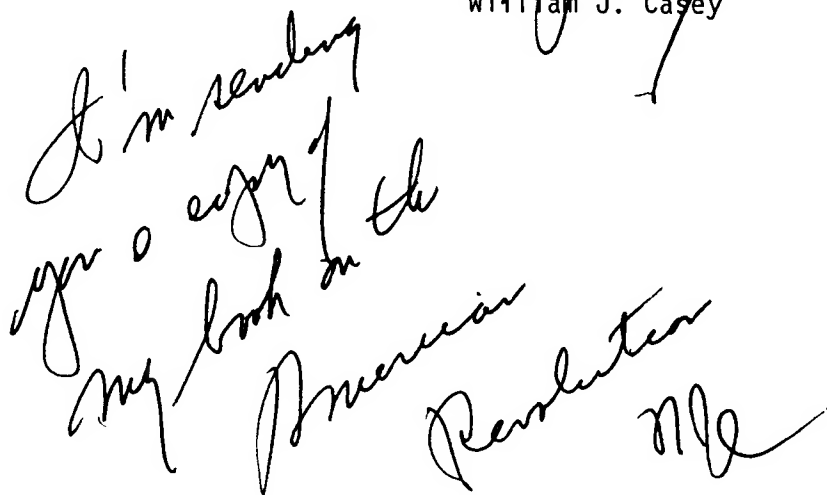 William J. Casey
I'm sending
you a copy of
my book on the
American
Revolution